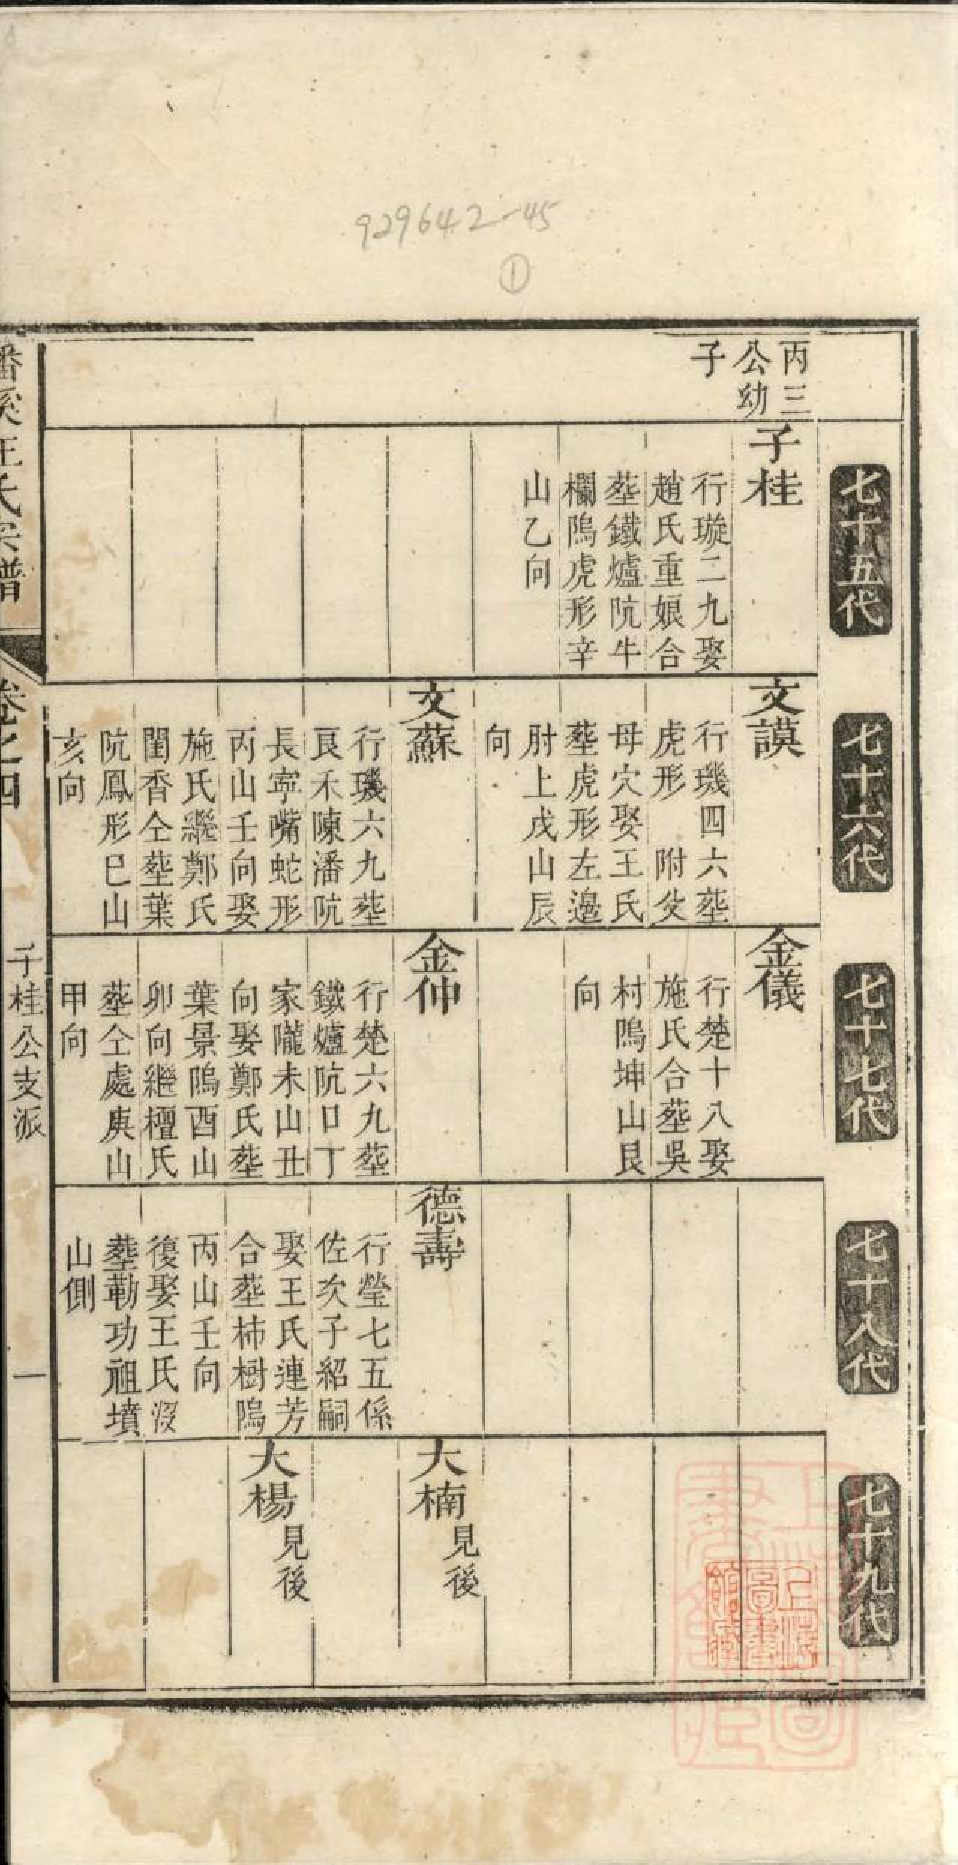 929642-45
①
七十五代
七十六代
七十七代
七十八代
七十九代
丙三
公幼
子
子桂
行璇二九娶
趙氏重娘合
塟鐵爐阬牛
欄隖虎形辛
山乙向
文謨
行璣四六塟
虎形 附父
母穴娶王氏
塟虎形左邊
肘上戌山辰
向
文蘇
行璣六九塟
艮禾陳潘阬
長寧嘴蛇形
丙山壬向娶
施氏繼鄭氏
閨香仝塟葉
阬鳳形巳山
亥向
金儀
行楚十八娶
施氏合塟吳
村隖坤山艮
向
金仲
行楚六九塟
鐵爐阬口丁
家隴未山丑
向娶鄭氏塟
葉景隖酉山
卯向繼檀氏
塟仝處庚山
甲向
德壽
行瑩七五係
佐次子紹嗣
娶王氏連芳
合塟柿樹隖
丙山壬向
復娶王氏沒
塟勒功祖墳
山側
大楠
見後
大楊
見後
潘溪王氏宗譜
卷之四
子桂公支派
一
上海
圖書
館藏